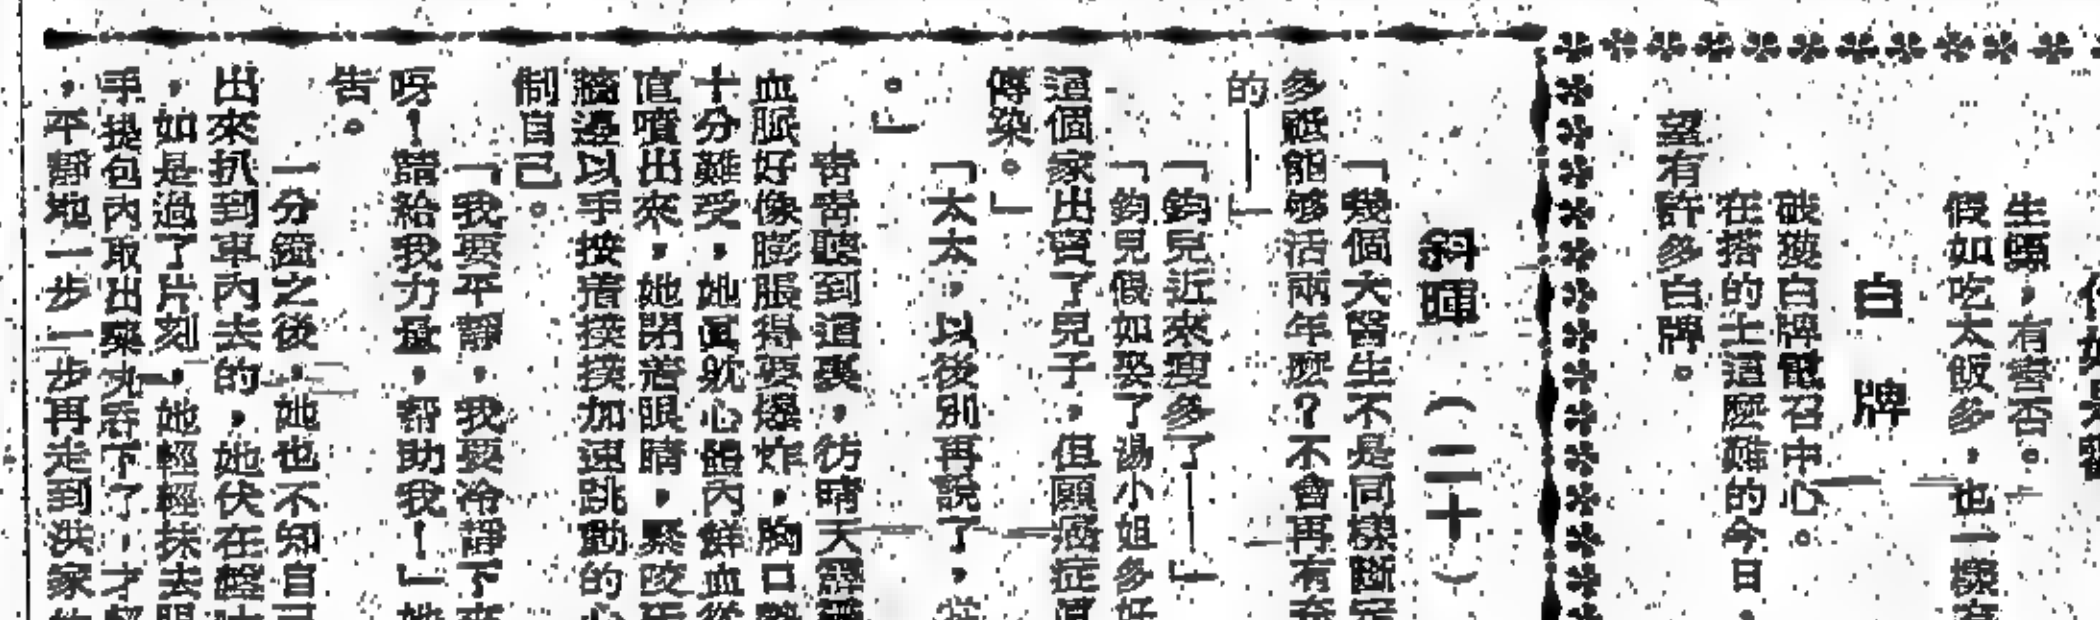 生嚼，有害否。
假如吃太飯多，也一樣有
白牌
破獲白牌電召中心。
在搭的士這麼難的今日，
望有許多白牌。
斜暉（二十）
「幾個大醫生不是同樣斷定
多祗能够活兩年麼？不會再有奇
的——」
「鈞兒近來瘦多了——」
「鈞兒假如娶了湯小姐多好
這個家出曾了兒子，但願癌症
傳染。」
「太太，以後別再說了，
。」
聽到這裏，彷晴天霹靂
血脈好像膨脹得要爆炸，胸口
十分難受，她眞躭心體內鮮血從
直噴出來，她閉着眼睛，緊咬
牆邊以手按着撲撲加速跳動的心
制自己。
「我要平靜，我要冷靜下來
呀！請給我力量，帮助我！」她
告。
一分鐘之後，她也不知自己
出來扒到車內去的，她伏在
，如是過了片刻，她輕輕抹去眼
手提包內取出藥丸吞下了，才
，平靜地一步一步再走到洪家